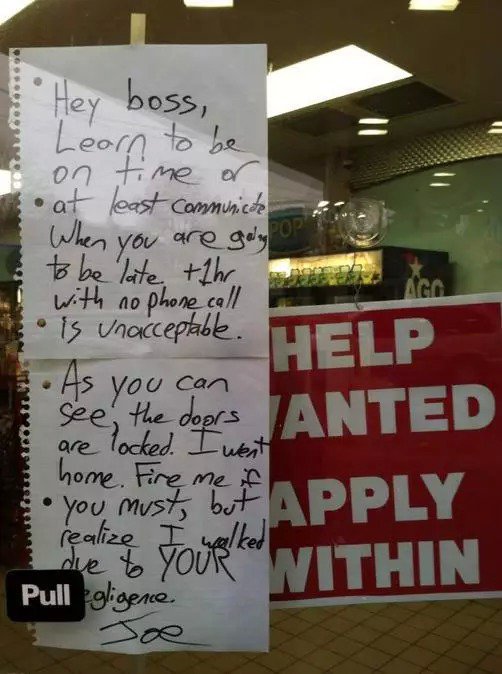 Hey boss,
Learn to be
on time or
at least communicate
When you are going
to be late. +1hr
with no phone call
is unacceptable.
As you can
see, the doors
are locked. I went
home. Fire me if
you must, but
realize I walked
due to YOUR
egligence.
Joe
Pull
POP
AGO
HELP
ANTED
APPLY
WITHIN